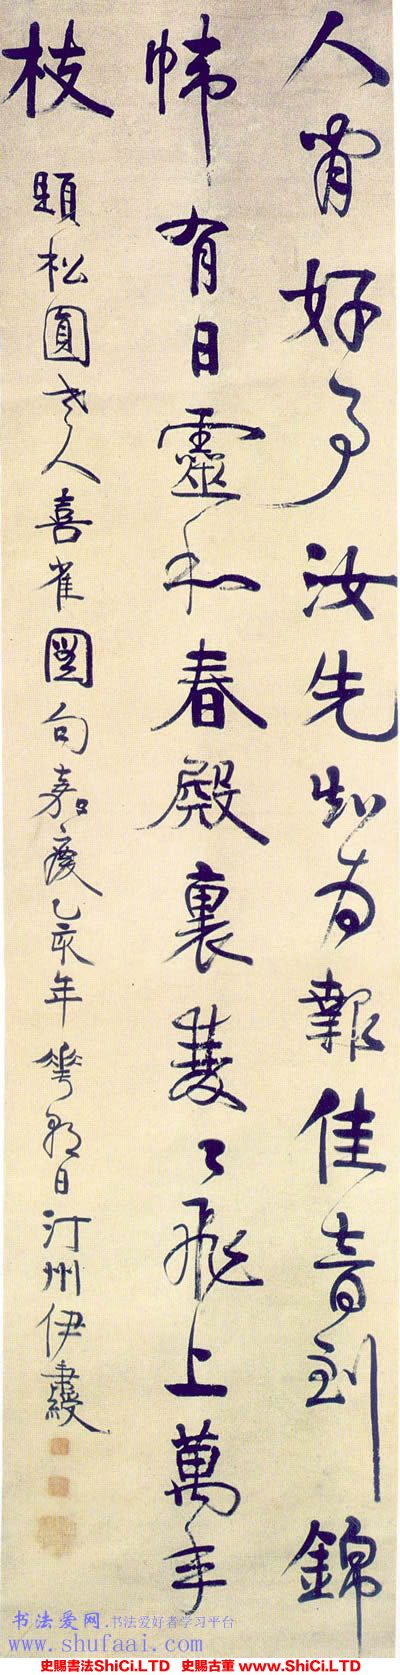 人間好事汝先知為報佳音到錦
幃有日靈和春殿裏雙々飛上萬年
枝
題松圓老人喜雀圖句嘉慶乙亥年華朝日汀州伊秉綬
书法爱网.书法爱好者学习平台
www.shufaai.com
史賜書法ShiCi.LTD 史賜古董 www.ShiCi.LTD